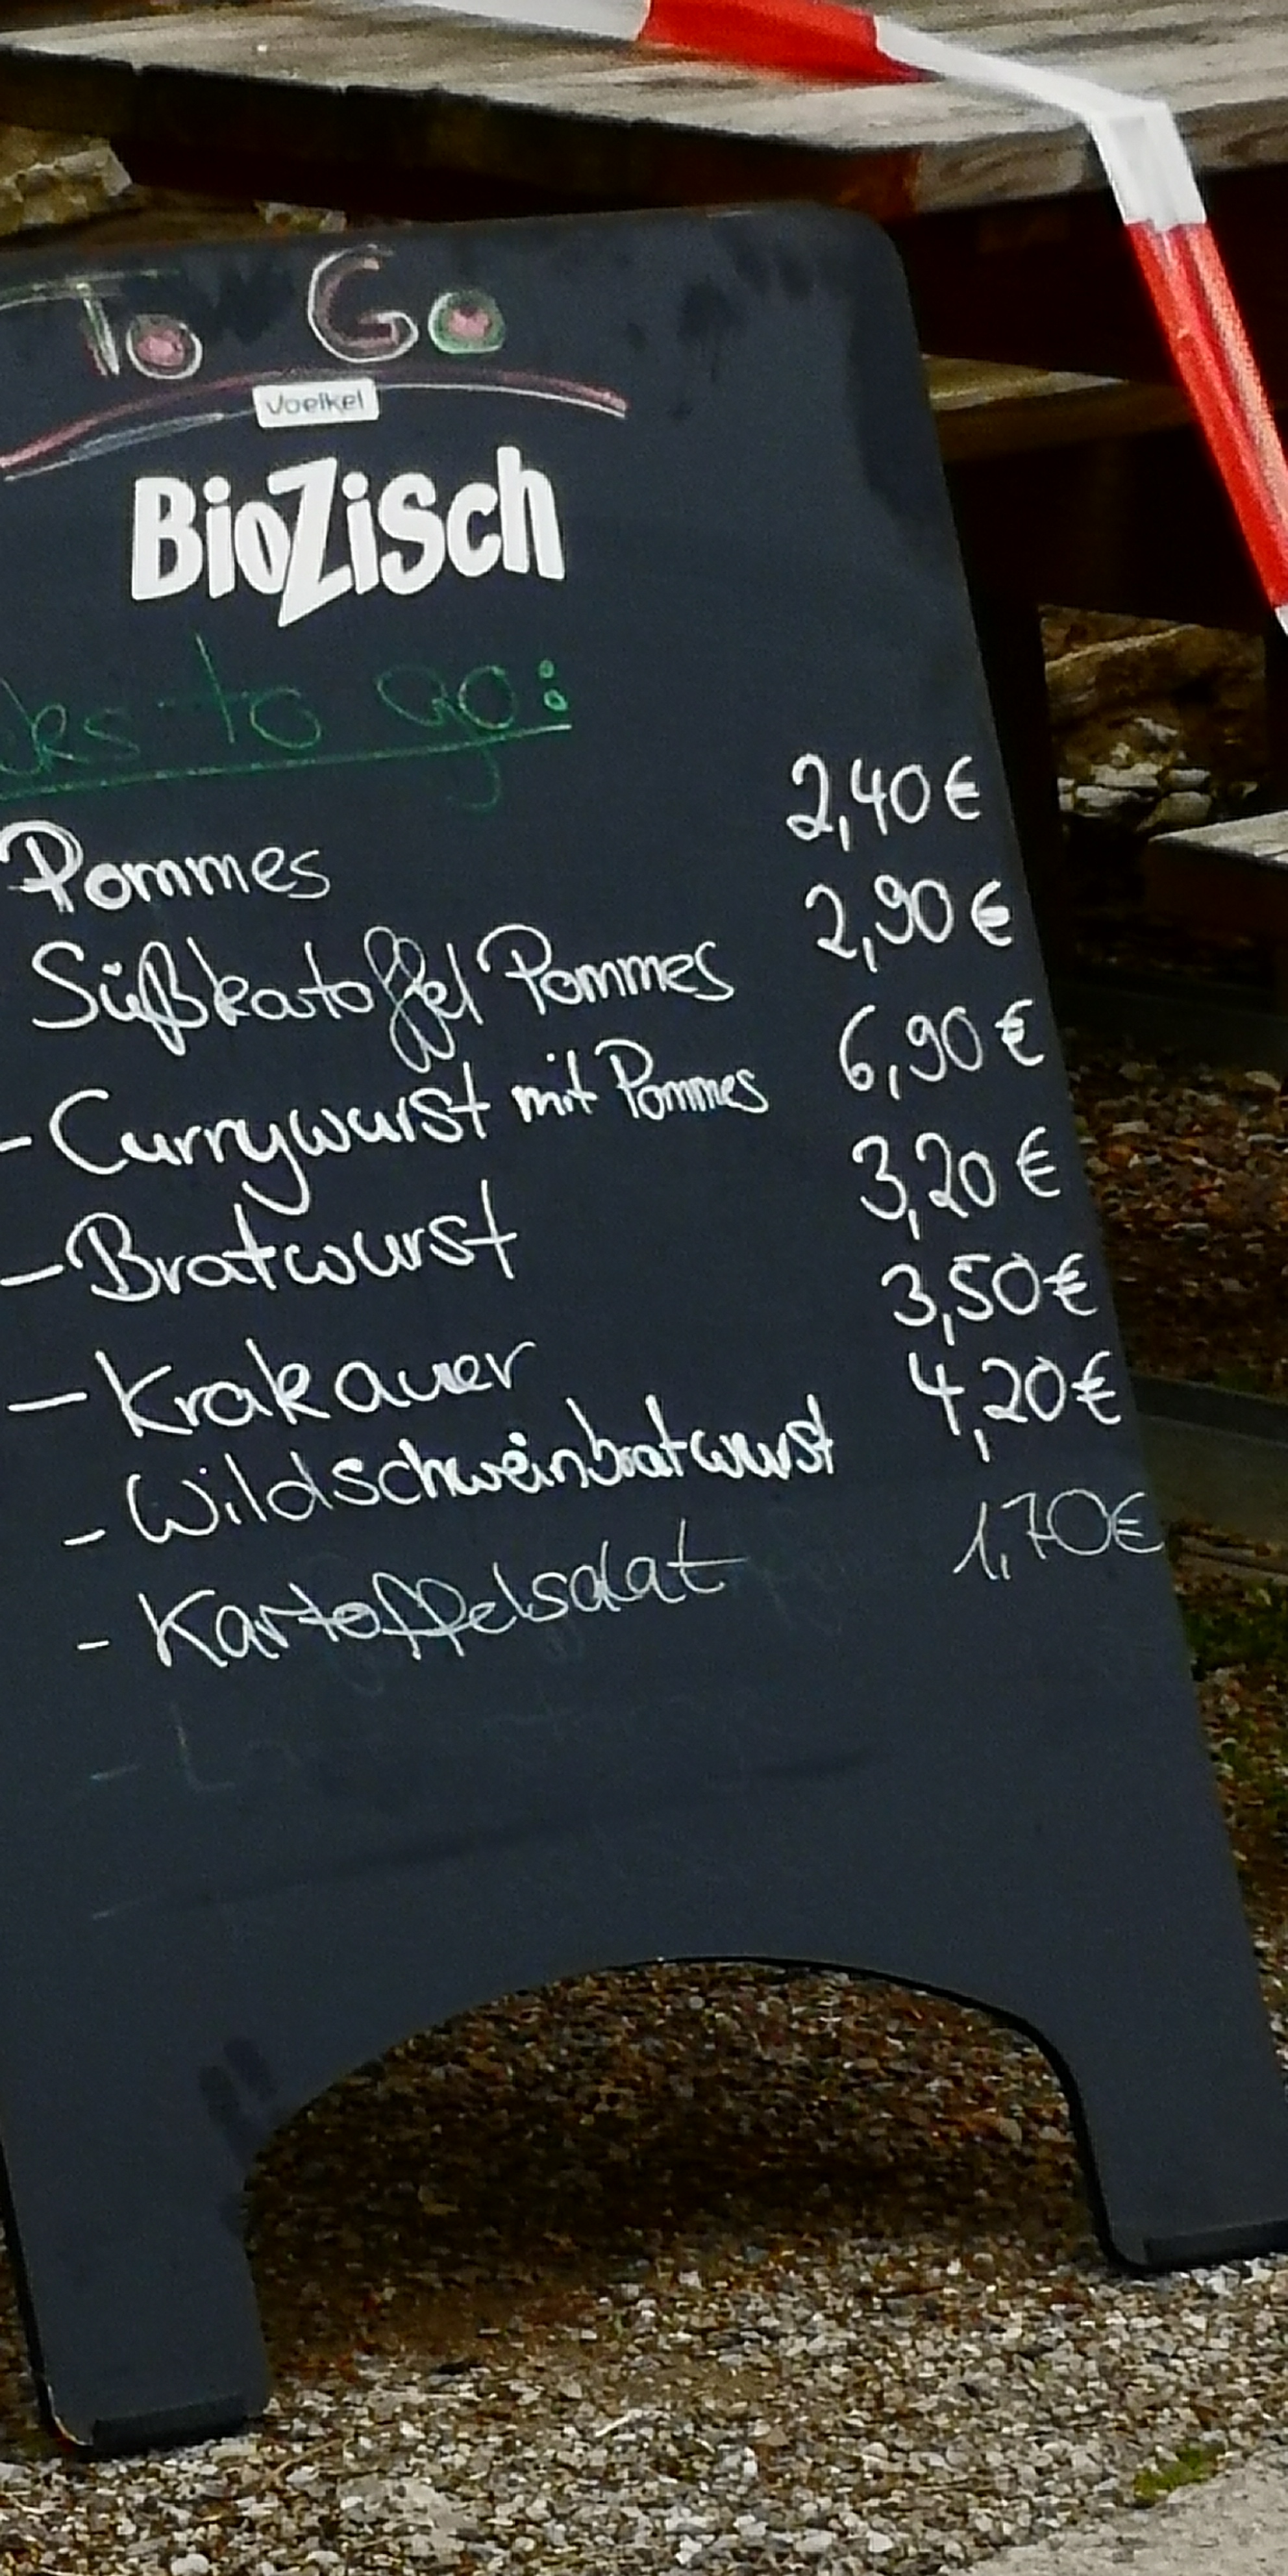 To Go
Voelkel
BioZisch
to go:
Pommes 2,40 €
Süßkartoffel Pommes 2,90 €
- Currywurst mit Pommes 6,90 €
- Bratwurst 3,20 €
- Krakauer 3,50 €
- Wildschweinbratwurst 4,20 €
- Kartoffelsalat 1,70 €